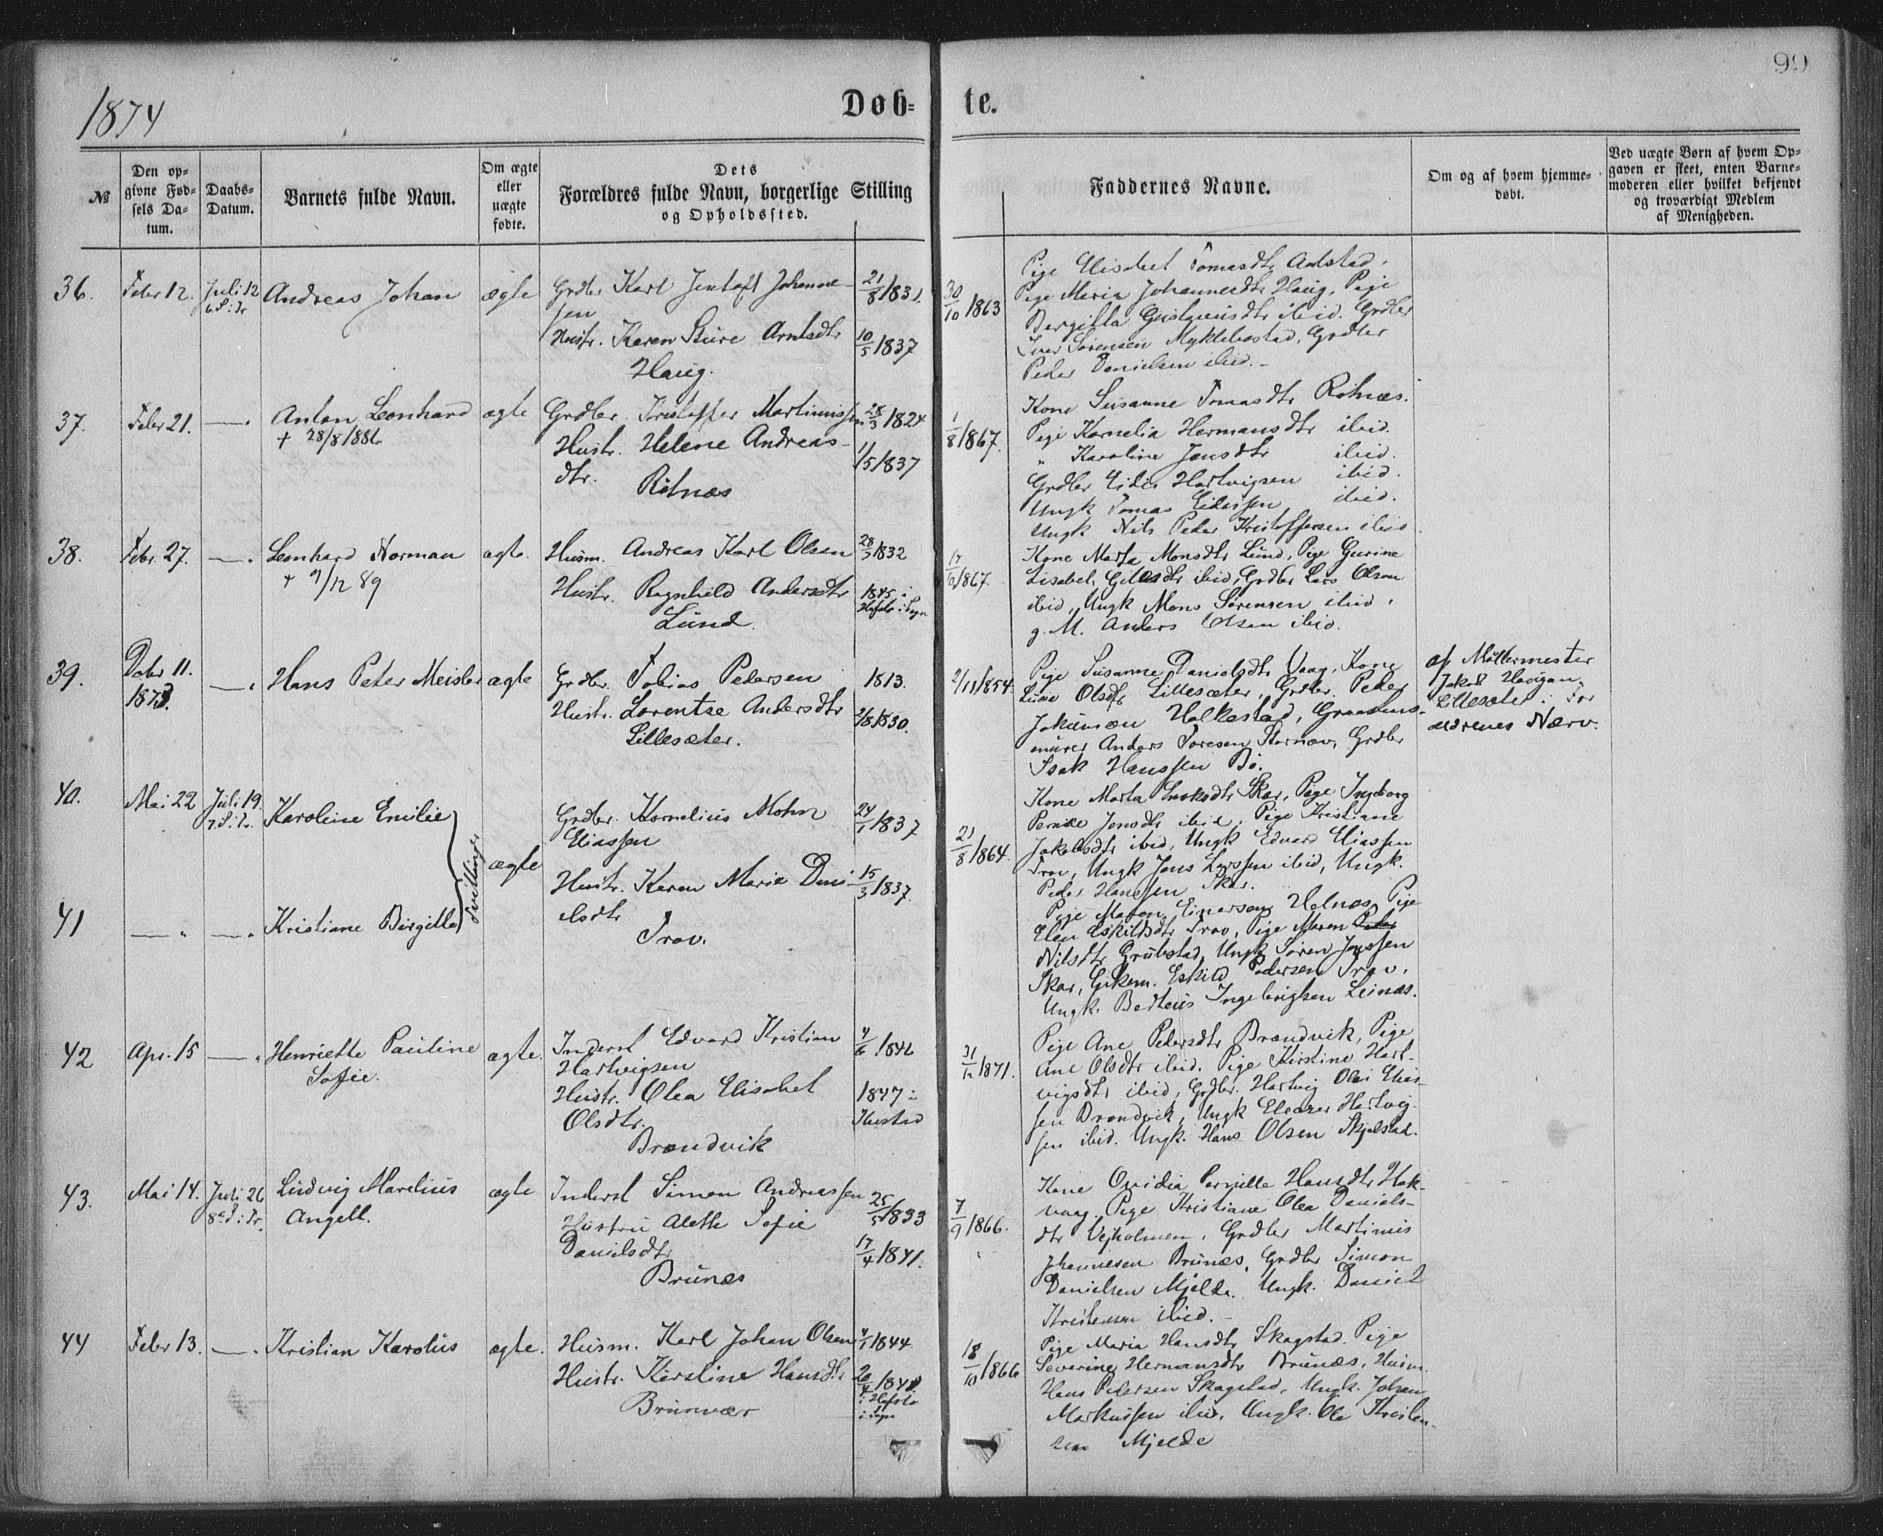 99
1874
Døbte.
№
Den opgivne Fødsels Datum.
Daabs-Datum.
Barnets fulde Navn.
Om ægte eller uægte fødte.
Dets Forældres fulde Navn, borgerlige Stilling og Opholdssted.
Faddernes Navne.
Om og af hvem hjemmedøbt.
Ved uægte Børn af hvem Opgaven er skeet, enten Barnemoderen eller hvilket bekjendt og troværdigt Medlem af Menigheden.
36.
Febr 12.
Juli 12
6. S. i Tr
Andreas Johan
ægte
Grdbr. Karl Jentoft Johanne-
sen
21/8 1831.
Hustr. Karen Sture Arntsdtr
10/5 1837
Haug.
30/10 1863
Pige Elisabet Tomasdtr
Pige Maria Johannesdtr Haug, Pige
Bergitta ibid. Grdbr
Iver Sørensen Myklebostad, Grdbr
Peder Danielsen ibid.
37.
Febr 21.
Anton Leonhard
+ 28/8 1886
ægte
Grdbr. Kristoffer Martinussen
28/3 1824
Hustr. Helene Andreas-
dtr.
11/5 1837
Rötnæs
1/8 1867.
Kone Susanne Tomasdtr Rötnæs.
Pige Kornelia Hermansdtr ibid.
" Karoline Jansdtr ibid.
Grdbr Hartvigsen ibid.
Ungk Tomas ibid.
Ungk Nils Peder Kristoffersen ibid
38.
Febr. 27.
Leonhard Norman
+ 9/12 89
ægte.
Husm. Andreas Karl Olsen
28/3 1832
Hustr. Ragnhild Andersdtr
1845 i
Hafslo i Sogn
Lund.
1867.
Kone Marta Monsdtr Lund, Pige Gurine
Lisabet ibid, Grdbr Lars Olsen
ibid, Ungk Mons Sørensen ibid,
g. M. Anders Olsen ibid.
39.
11.
1873.
Hans Peter Meisler
ægte
Grdbr. Tobias Pedersen
1813.
Hustr. Lorentse Andersdtr
2/8 1830.
Lillesæter.
2/11 1854.
Pige Susanne Danielsdtr Vaag, Kone
Olsdtr Lillesæter, Grdbr. Peder
Jakobsen Holkestad,
Anders Toresen Grdbr
Isak Hanssen Bö.
af Møllermester
Jakob Haagan
Lillesæter i For
ældrenes Nærv.
40.
Mai 22
Juli 19.
7. S. i Tr.
Karoline Emilie
Tvillinger
ægte
Grdbr. Kornelius Mohn
Eliassen
24/1 1837
Hustr. Karen Marie Dani
elsdtr
15/3 1837.
Trov.
21/8 1864.
Kone Marta Skar, Pige Ingeborg
Jonsdtr ibid, Pige Kristiane
Jakobsdtr ibid, Ungk Edvard Eliassen
Trov, Ungk Jens Larssen ibid, Ungk.
Peder Hanssen Skar.
41
Kristiane Birgitte
Pige Helnæs, Pige
Elen Eskildsdtr Trov, Pige Maren
Nilsdtr Grübstad, Ungk Sören Jonssen
Skar, Enkem. Eskild Pedersen Trov,
Ungk. Ingebrigtsen Leinæs.
42
Apr. 15
Henriette Pauline
Sofie.
ægte.
Inderst Edvard Kristian
Hartvigsen
4/6 1846
Hustr. Olea Elisabet
Olsdtr.
1847 i
Brændvik
31/12 1871.
Pige Ane Pedersdtr Brændvik, Pige
Ane Olsdtr ibid. Pige Kirstine Hart-
vigsdtr ibid, Grdbr. Hartvig Olai Elias-
sen Brændvik, Ungk Hartvig-
sen ibid. Ungk. Hans Olsen Skjelstad.
43.
Mai 14.
Juli 26
8de S. i Tr.
Ludvig Marelius
Angell.
ægte
Inderst Simon Andreassen
25/5 1833
Hustru Alette Sofie
Danielsdtr
17/4 1841.
Brunæs
7/9 1866.
Kone Ovidia Pernille Hansdtr Hok-
vaag, Pige Kristiane Olea Daniels-
dtr Vejholmen, Grdbr Martinus
Johannesen Brunæs, Grdbr Simon
Danielsen Mjelde. Ungk. Daniel
Kristensen ibid.
44
Febr 13.
Kristian Karolus
ægte.
Husm. Karl Johan Olsen
4/1 1844.
Hustr. Kirstine Hansdtr
20/4 1848
i Hafslo
i Sogn
Brunvær
18/10 1866
Pige Maria Hansdtr Skagstad, Pige
Severine Hermansdtr Brunæs, Husm.
Hans Pedersen Skagstad, Ungk. Johan
Markussen ibid, Ungk. Ole Kristen-
sen Mjelde